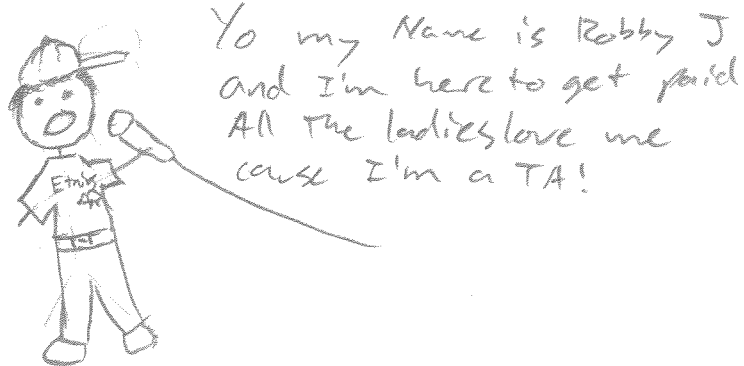 Yo my Name is Robby J
and I'm here to get paid
All the ladies love me
cause I'm a TA!